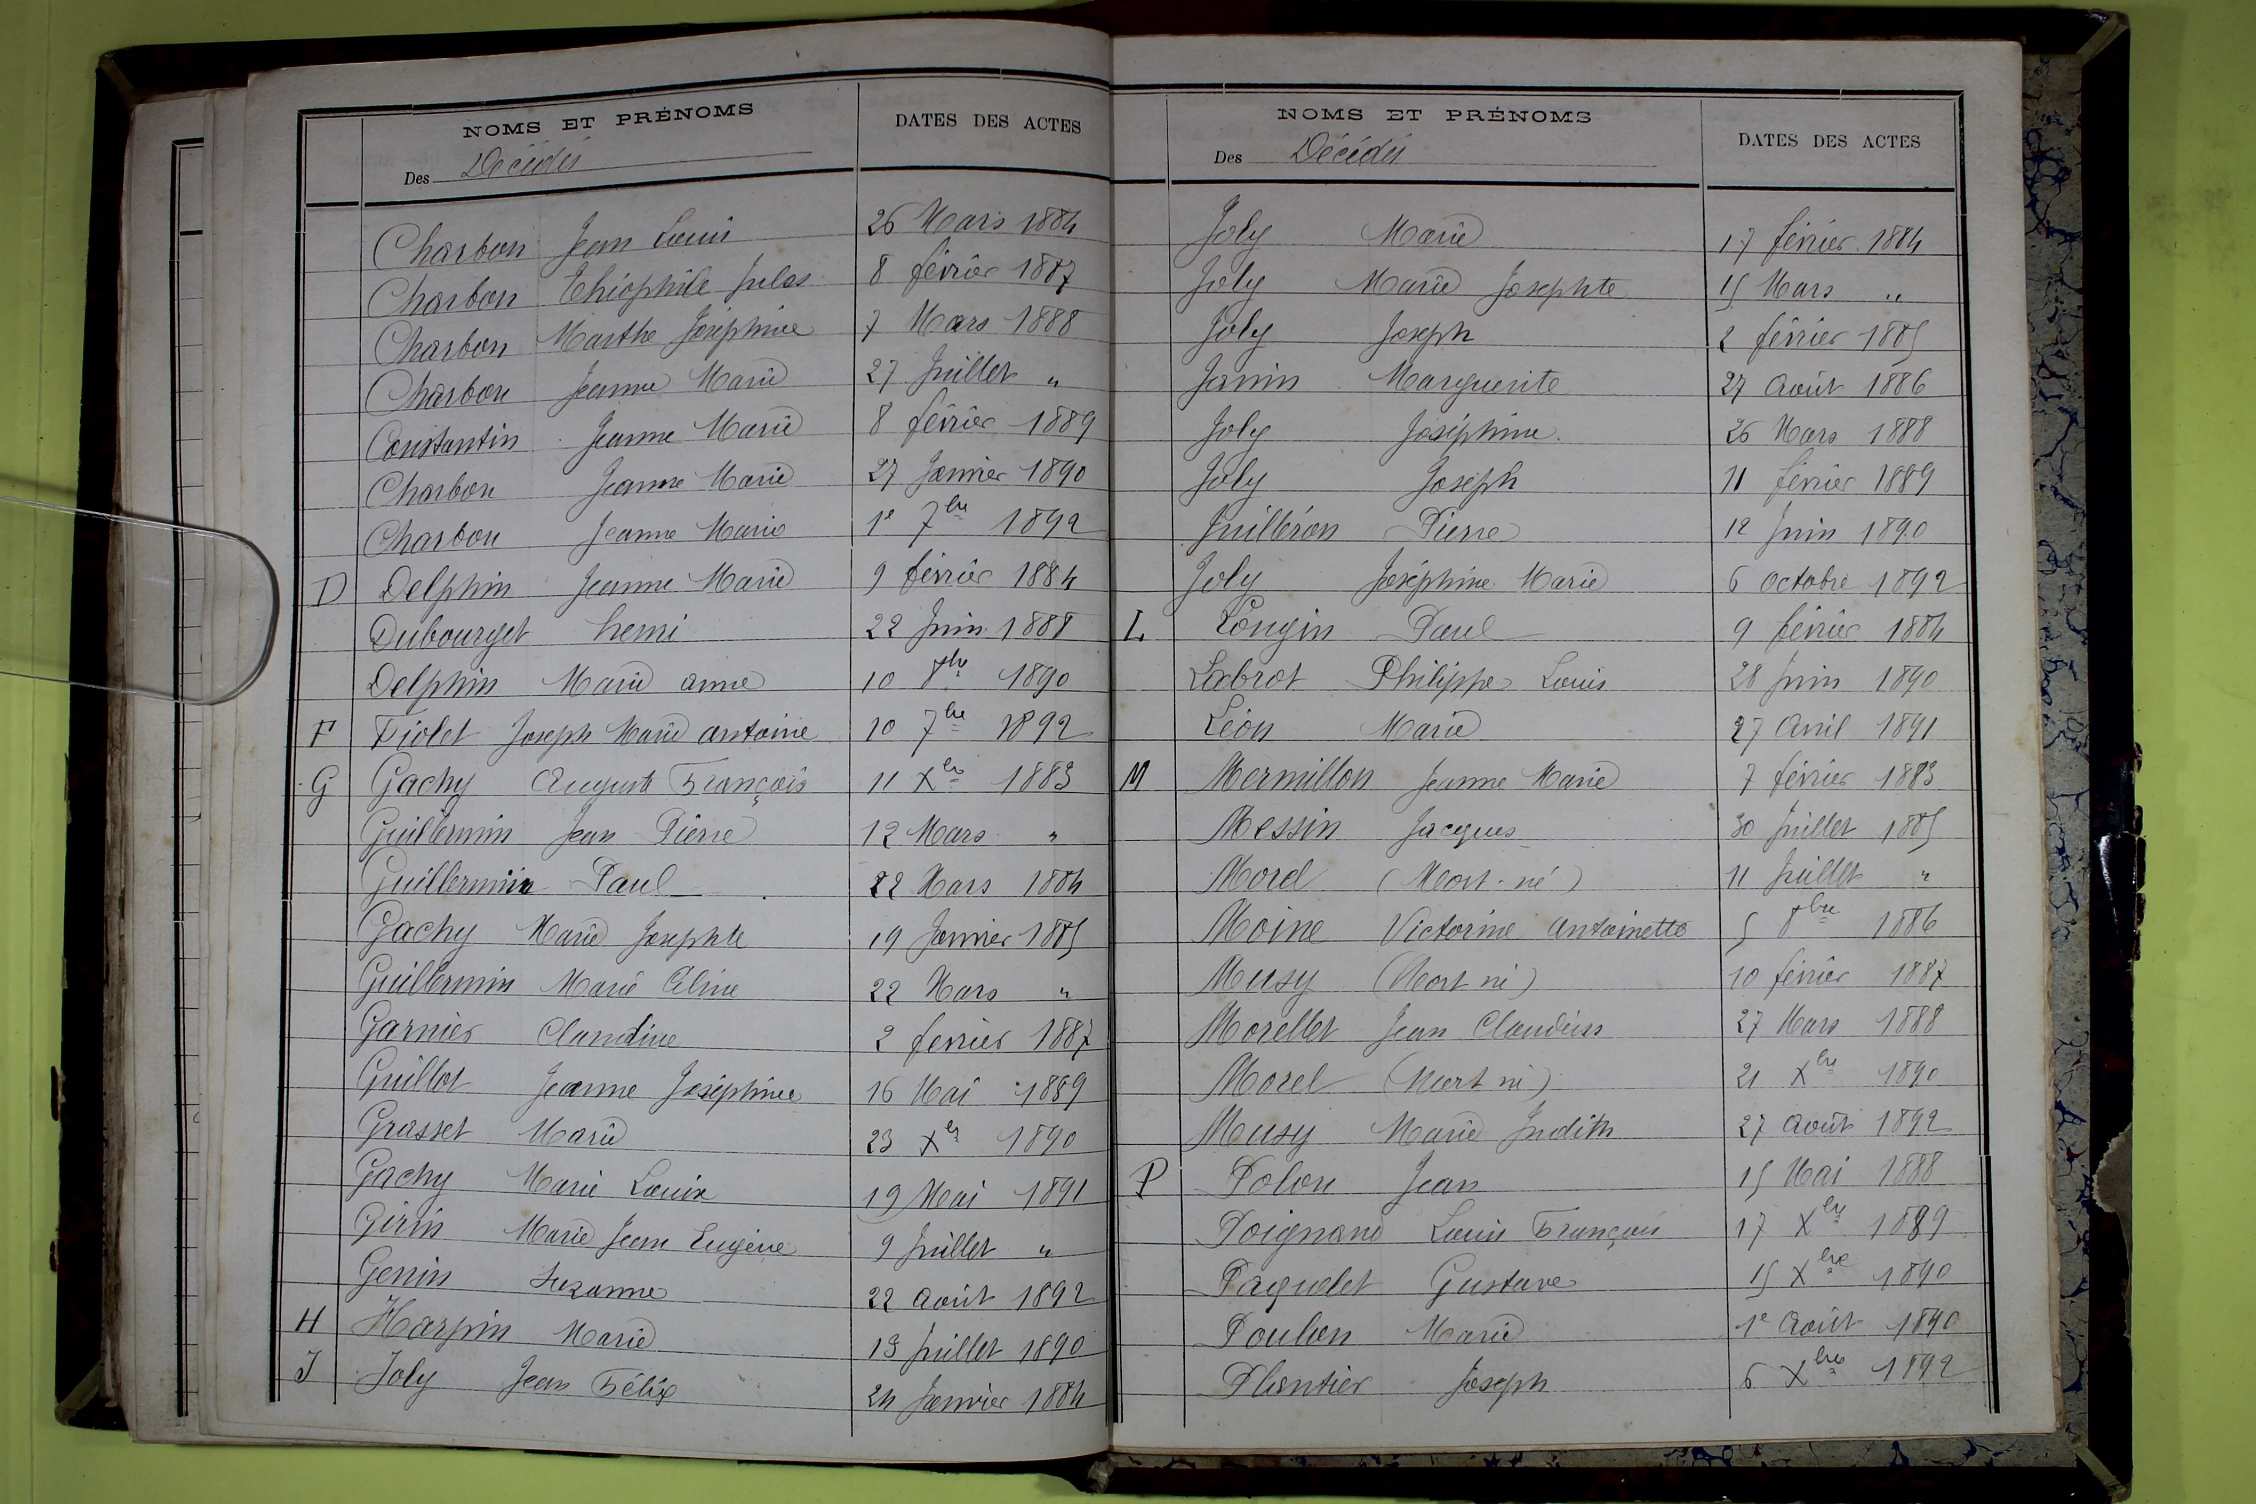 NOMS ET PRÉNOMS DATES DES ACTES
Des Décédés
Charbon Jean Louis 26 Mars 1884
Charbon Théophile Jules 8 février 1887
Charbon Marthe Joséphine 7 Mars 1888
Charbon Jeanne Marie 27 Juillet "
Constantin Jeanne Marie 8 février 1889
Charbon Jeanne Marie 27 Janvier 1890
Charbon Jeanne Marie 1e 7bre 1892
D Delphin Jeanne Marie 9 février 1884
Dubourget henri 22 Juin 1888
Delphin Marie anne 10 8bre 1890
F Fiolet Joseph Marie antoine 10 7bre 1892
G Gachy Auguste François 11 Xbre 1883
Guillermin Jean Pierre 12 Mars "
Guillermin Paul 22 Mars 1884
Gachy Marie Josephte 19 Janvier 1885
Guillermin Marie Céline 22 Mars "
Garnier Claudine 2 fevrier 1887
Guillot Jeanne Joséphine 16 Mai 1889
Grasset Marie 23 Xbre 1890
Gachy Marie Louise 19 Mai 1891
Girin Marie Jean Eugène 9 Juillet "
Genin Suzanne 22 août 1892
H Harpin Marie 13 Juillet 1890
J Joly Jean Félix 24 Janvier 1884
NOMS ET PRÉNOMS DATES DES ACTES
Des Décédés
Joly Marie 17 février 1884
Joly Marie Josephte 15 Mars "
Joly Joseph 2 février 1885
Janin Marguerite 27 août 1886
Joly Joséphine 26 Mars 1888
Joly Joseph 11 février 1889
Juilléron Pierre 12 Juin 1890
Joly Joséphine Marie 6 octobre 1892
L Longin Paul 9 février 1884
Labrot Philippe Louis 28 Juin 1890
Léon Marie 27 avril 1891
M Mermillon Jeanne Marie 7 février 1883
Messin Jacques 30 Juillet 1885
Morel (Mort-né) 11 Juillet "
Moine Victorine Antoinette 5 8bre 1886
Musy (Mort né) 10 février 1887
Morellet Jean Claudius 27 Mars 1888
Morel (Mort né) 21 Xbre 1890
Musy Marie Judith 27 août 1892
P Polon Jean 15 Mai 1888
Poignand Louis François 17 Xbre 1889
Paquelet Gustave 15 Xbre 1890
Poulon Marie 1e août 1890
Plantier Joseph 6 Xbre 1892